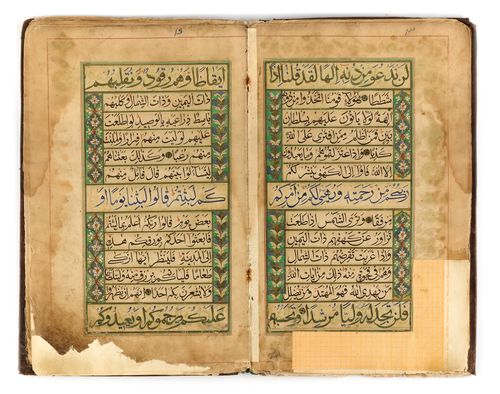 لَنْ نَدْعُوَ مِنْ دُونِهِ اِلٰهًا لَقَدْ قُلْنَا اِذًا
شَطَطًا هٰؤُلَاءِ قَوْمُنَا اتَّخَذُوا مِنْ دُونِهِ
اٰلِهَةً لَوْلَا يَاْتُونَ عَلَيْهِمْ بِسُلْطَانٍ
بَيِّنٍ فَمَنْ اَظْلَمُ مِمَّنِ افْتَرٰى عَلَى اللّٰهِ
كَذِبًا وَاِذِ اعْتَزَلْتُمُوهُمْ وَمَا يَعْبُدُونَ
اِلَّا اللّٰهَ فَاْوُا اِلَى الْكَهْفِ يَنْشُرْ لَكُمْ
رَبُّكُمْ مِنْ رَحْمَتِهِ وَيُهَيِّئْ لَكُمْ مِنْ اَمْرِكُمْ
مِرْفَقًا وَتَرَى الشَّمْسَ اِذَا طَلَعَتْ
تَزَاوَرُ عَنْ كَهْفِهِمْ ذَاتَ الْيَمِينِ
وَاِذَا غَرَبَتْ تَقْرِضُهُمْ ذَاتَ الشِّمَالِ
وَهُمْ فِي فَجْوَةٍ مِنْهُ ذٰلِكَ مِنْ اٰيَاتِ اللّٰهِ
مَنْ يَهْدِي اللّٰهُ فَهُوَ الْمُهْتَدِ وَمَنْ يُضْلِلْ
فَلَنْ تَجِدَ لَهُ وَلِيًّا مُرْشِدًا وَتَحْسَبُهُمْ
اَيْقَاظًا وَهُمْ رُقُودٌ وَنُقَلِّبُهُمْ
ذَاتَ الْيَمِينِ وَذَاتَ الشِّمَالِ وَكَلْبُهُمْ
بَاسِطٌ ذِرَاعَيْهِ بِالْوَصِيدِ لَوِ اطَّلَعْتَ
عَلَيْهِمْ لَوَلَّيْتَ مِنْهُمْ فِرَارًا وَلَمُلِئْتَ
مِنْهُمْ رُعْبًا وَكَذٰلِكَ بَعَثْنَاهُمْ
لِيَتَسَاءَلُوا بَيْنَهُمْ قَالَ قَائِلٌ مِنْهُمْ
كَمْ لَبِثْتُمْ قَالُوا لَبِثْنَا يَوْمًا اَوْ
بَعْضَ يَوْمٍ قَالُوا رَبُّكُمْ اَعْلَمُ بِمَا لَبِثْتُمْ
فَابْعَثُوا اَحَدَكُمْ بِوَرِقِكُمْ هٰذِهِ
اِلَى الْمَدِينَةِ فَلْيَنْظُرْ اَيُّهَا اَزْكٰى
طَعَامًا فَلْيَاْتِكُمْ بِرِزْقٍ مِنْهُ وَلْيَتَلَطَّفْ
وَلَا يُشْعِرَنَّ بِكُمْ اَحَدًا اِنَّهُمْ اِنْ يَظْهَرُوا
عَلَيْكُمْ يَرْجُمُوكُمْ اَوْ يُعِيدُوكُمْ